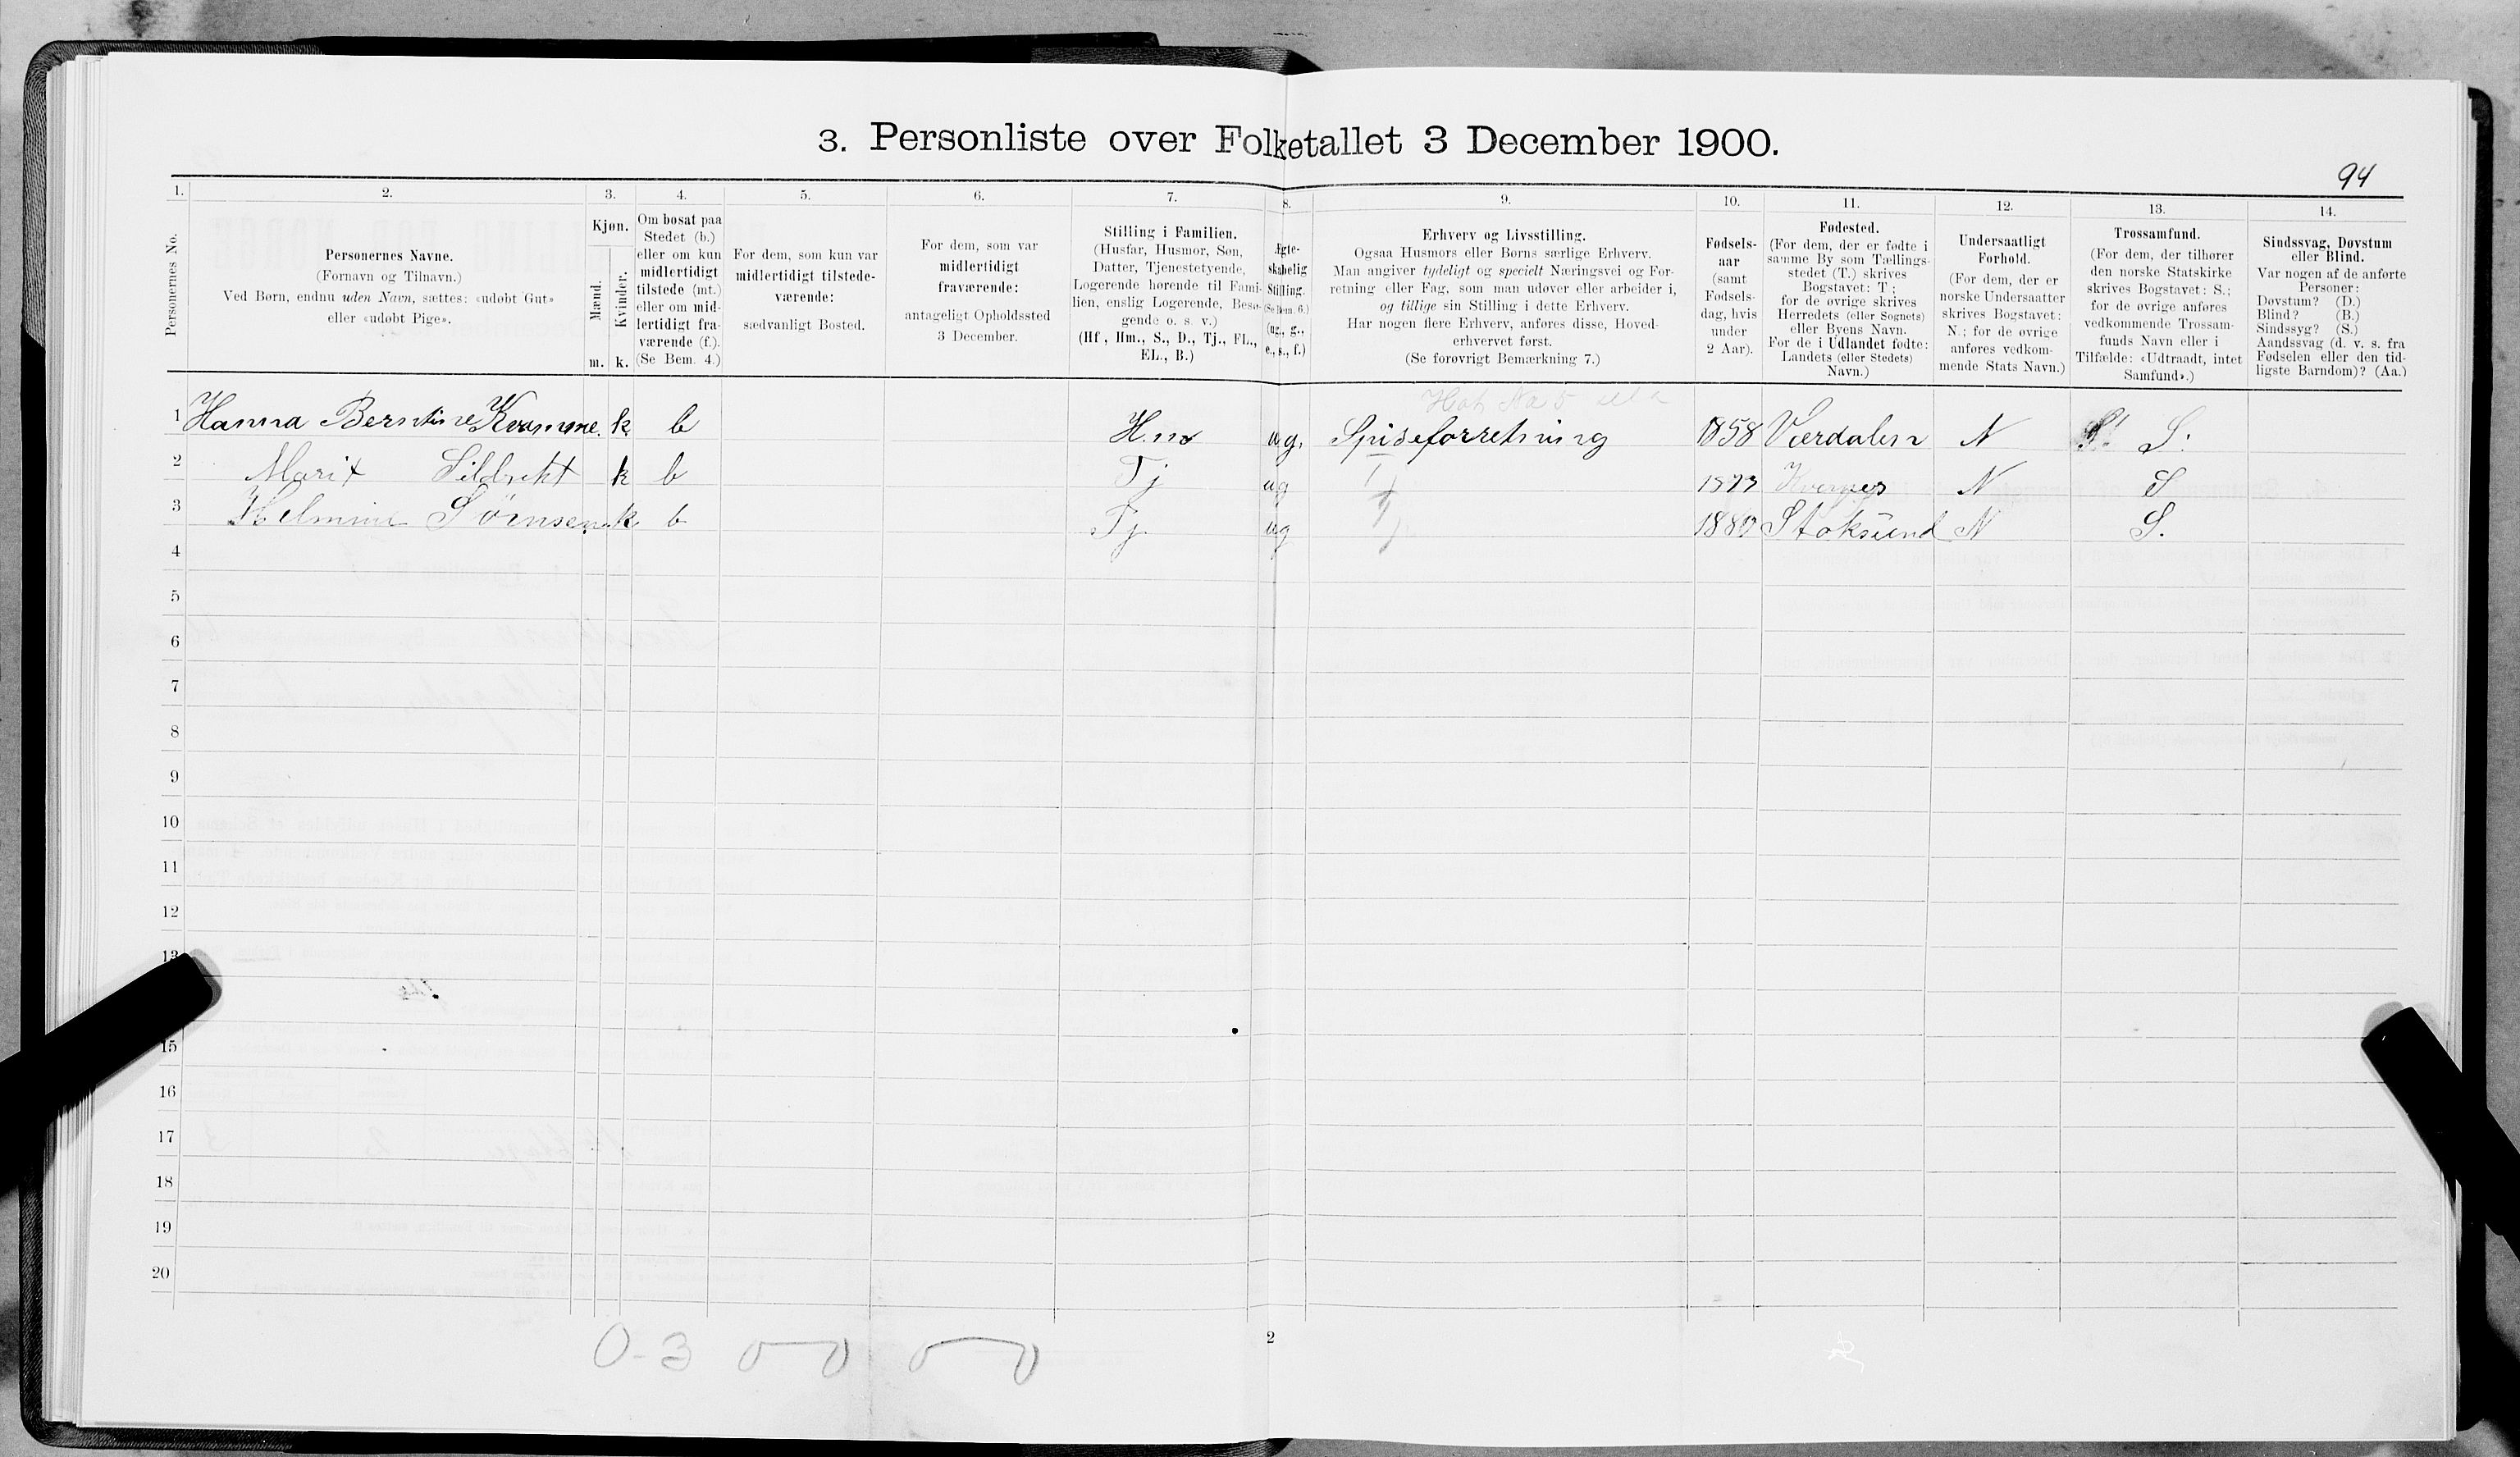 3. Personliste over Folketallet 3 December 1900.
94
1. 2. 3. 4. 5. 6. 7. 8. 9. 10. 11. 12. 13. 14.
Personernes No.
Personernes Navne.
(Fornavn og Tilnavn.)
Ved Børn, endnu uden Navn, sættes: «udøbt Gut»
eller «udøbt Pige».
Kjøn.
Mænd.
Kvinder.
m. k.
Om bosat paa
Stedet (b.)
eller om kun
midlertidigt
tilstede (mt.)
eller om mid-
lertidigt fra-
værende (f.).
(Se Bem. 4.)
For dem, som kun var
midlertidigt tilstede-
værende:
sædvanligt Bosted.
For dem, som var
midlertidigt
fraværende:
antageligt Opholdssted
3 December.
Stilling i Familien.
(Husfar, Husmor, Søn,
Datter, Tjenestetyende,
Logerende hørende til Fami-
lien, enslig Logerende, Besø-
gende o. s. v.)
(Hf., Hm., S., D., Tj., FL.,
EL., B.)
Ægte-
skabelig
Stilling.
(Se Bem. 6.)
(ug., g.,
e., s., f.)
Erhverv og Livsstilling.
Ogsaa Husmors eller Børns særlige Erhverv.
Man angiver tydeligt og specielt Næringsvei og For-
retning eller Fag, som man udøver eller arbeider i,
og tillige sin Stilling i dette Erhverv.
Har nogen flere Erhverv, anføres disse, Hoved-
erhvervet først.
(Se forøvrigt Bemærkning 7.)
Fødsels-
aar
(samt
Fødsels-
dag, hvis
under
2 Aar).
Fødested.
(For dem, der er fødte i
samme By som Tællings-
stedet (T.) skrives
Bogstavet: T;
for de øvrige skrives
Herredets (eller Sognets)
eller Byens Navn.
For de i Udlandet fødte:
Landets (eller Stedets)
Navn.)
Undersaatligt
Forhold.
(For dem, der er
norske Undersaatter
skrives Bogstavet:
N.; for de øvrige
anføres vedkom-
mende Stats Navn.)
Trossamfund.
(For dem, der tilhører
den norske Statskirke
skrives Bogstavet: S.;
for de øvrige anføres
vedkommende Trossam-
funds Navn eller i
Tilfælde: «Udtraadt, intet
Samfund».)
Sindssvag, Døvstum
eller Blind.
Var nogen af de anførte
Personer:
Døvstum? (D.)
Blind? (B.)
Sindssyg? (S.)
Aandssvag (d. v. s. fra
Fødselen eller den tid-
ligste Barndom)? (Aa.)
1 Hanna Berntine Kvamme. k b Hm ug. Spiseforretning 1858 Værdalen N S.
2 Marit k b Tj ug N S
3 Helmine Sørnsen k b Tj ug 1880 Stoksund N S.
4
5
6
7
8
9
10
11
12
13
15
16
17
18
19
20
0-3
2